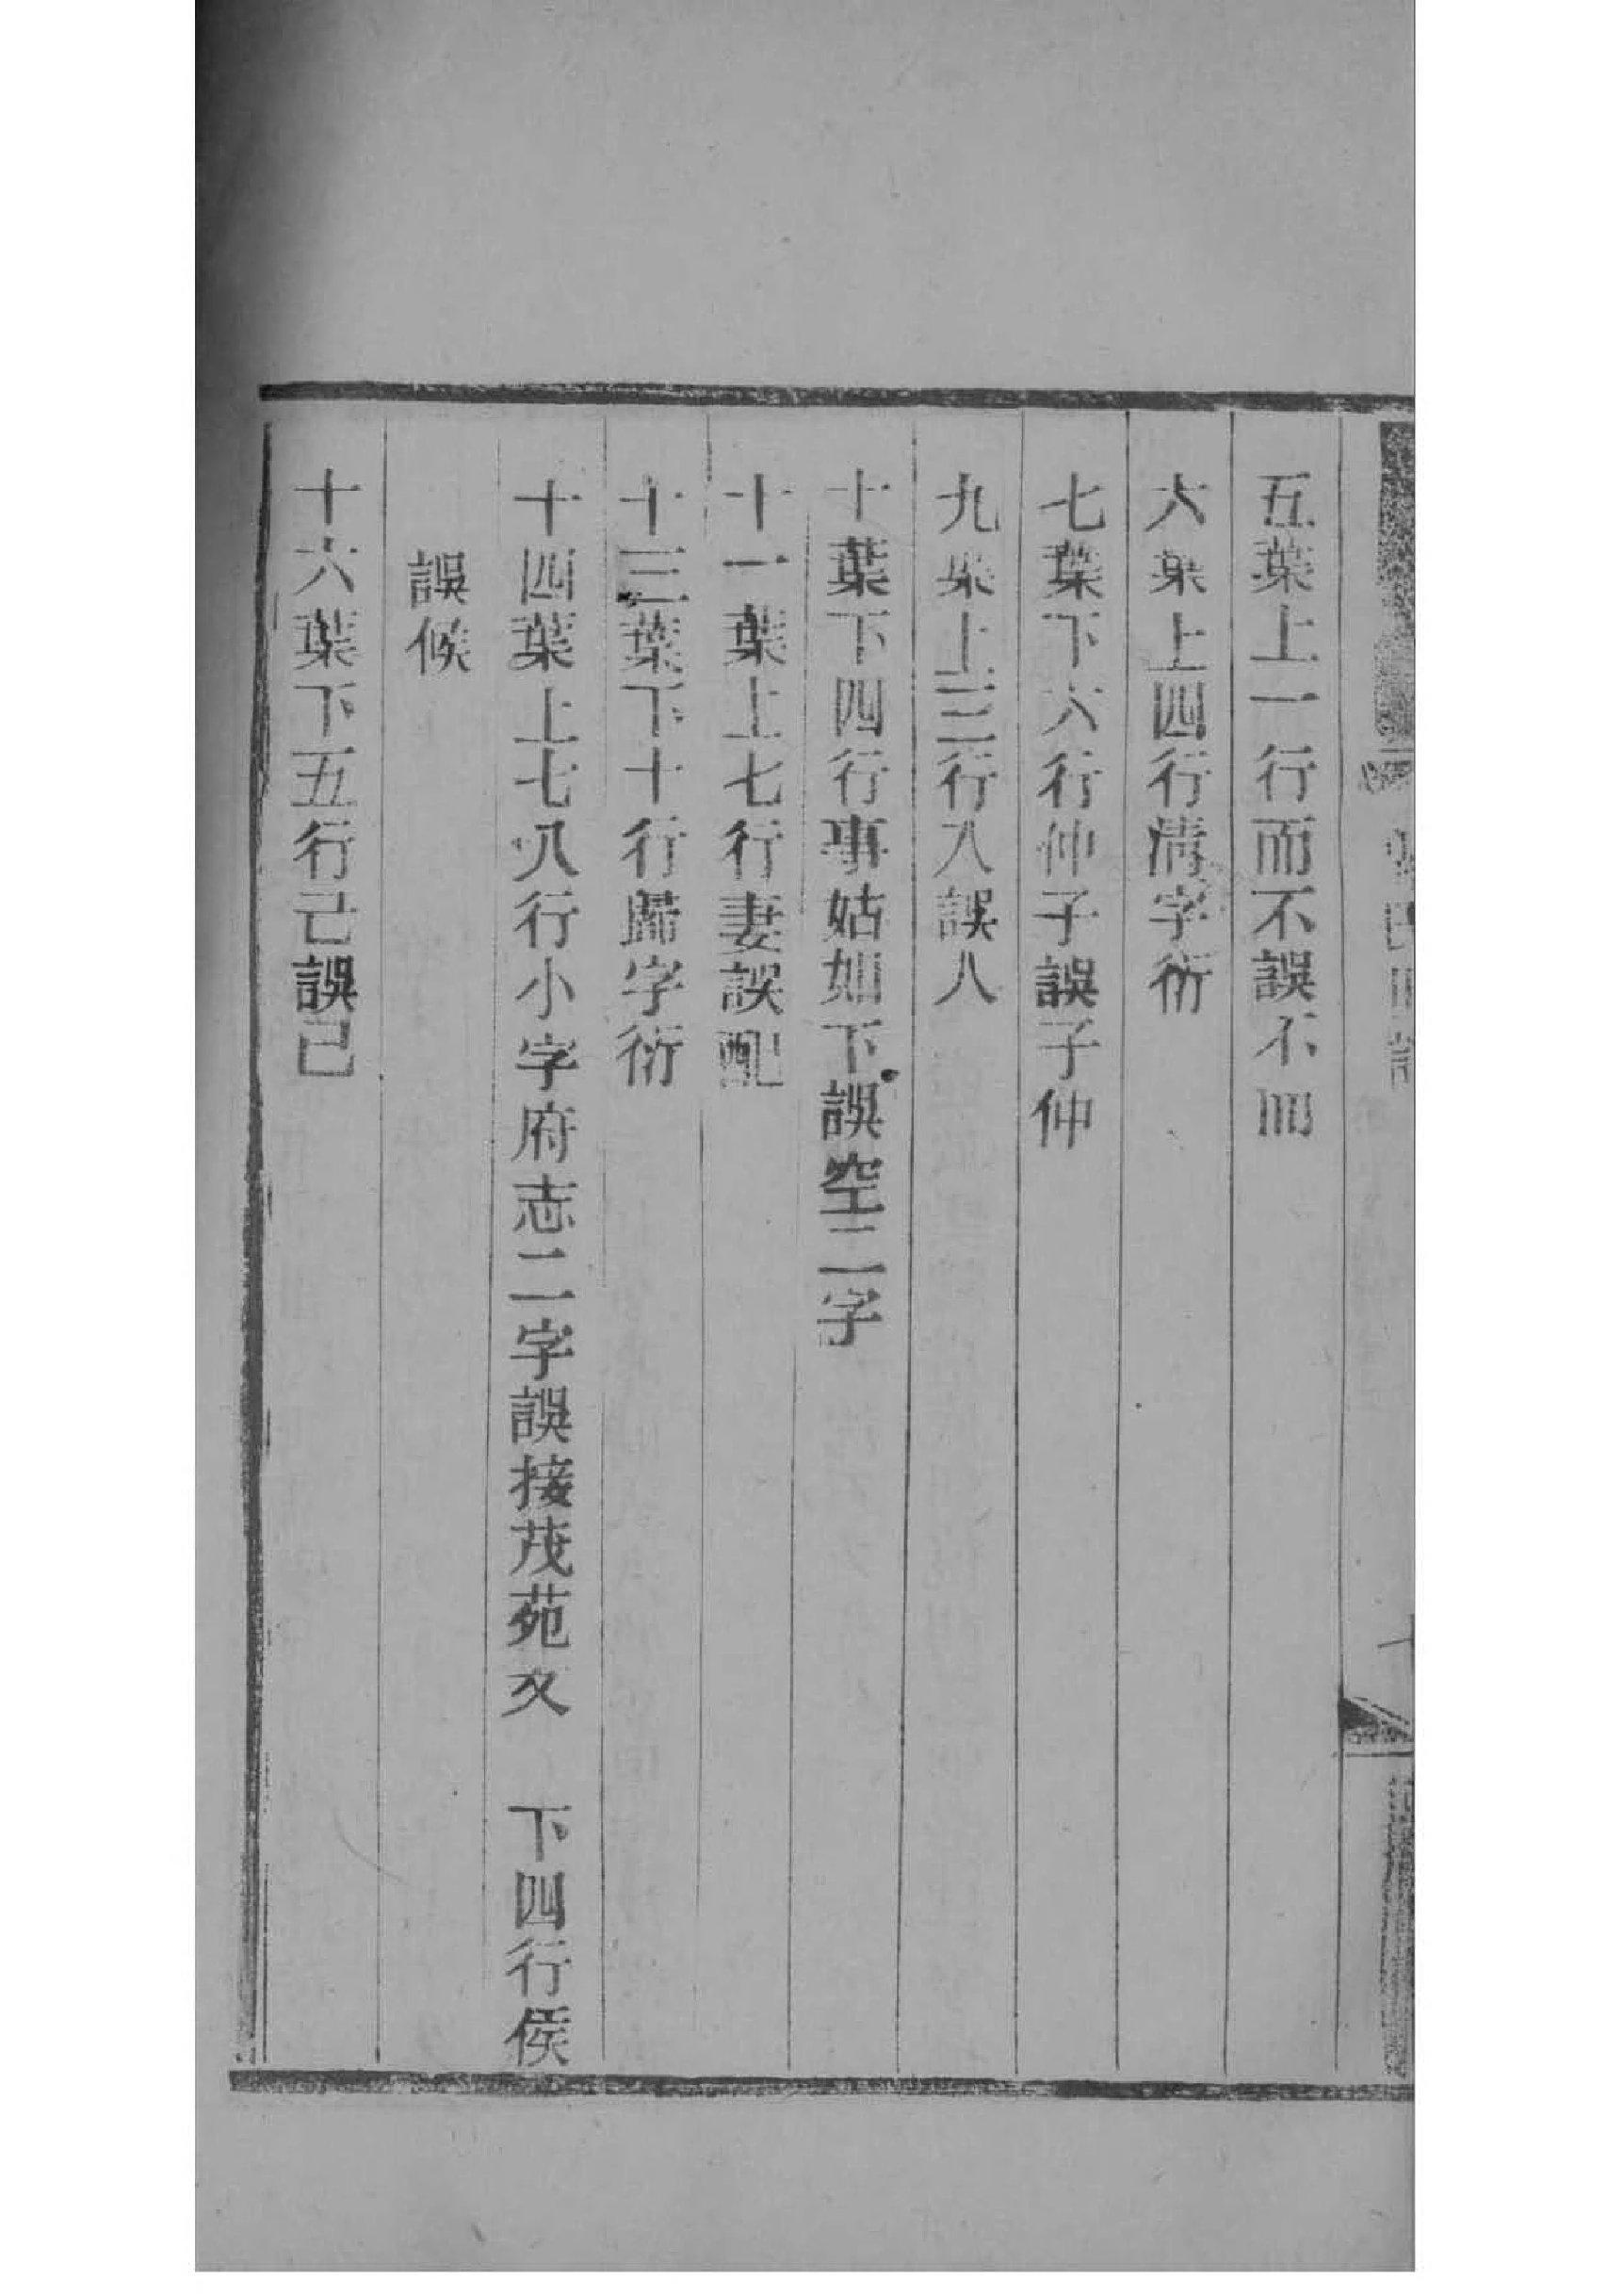 五葉上一行而不誤不而
六葉上四行清字衍
七葉下六行仲子誤子仲
九葉上三行入誤八
十葉下四行事姑如下誤空二字
十一葉上七行妻誤配
十三葉下十行歸字衍
十四葉上七八行小字府志二字誤接茂苑文　下四行侯
誤候
十六葉下五行己誤已